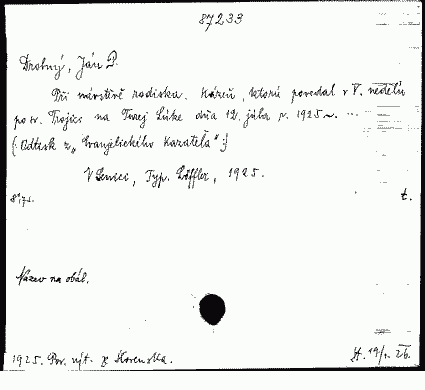 87233
Drobný, Ján P.
Při návštěvě rodiska. Kázeň, ktorú povedal v V. nedeľu
po sv. Trojici na Turej Lúke dňa 12. júla r. 1925 ...
(: Odtisk z „Evanjelického Kazateľa“ :)
V Senici, Typ. Löffler, 1925.
8°,
t.
Název na obál.
1925. Pov. výt. ze Slovenska.
H. 19/ 26.